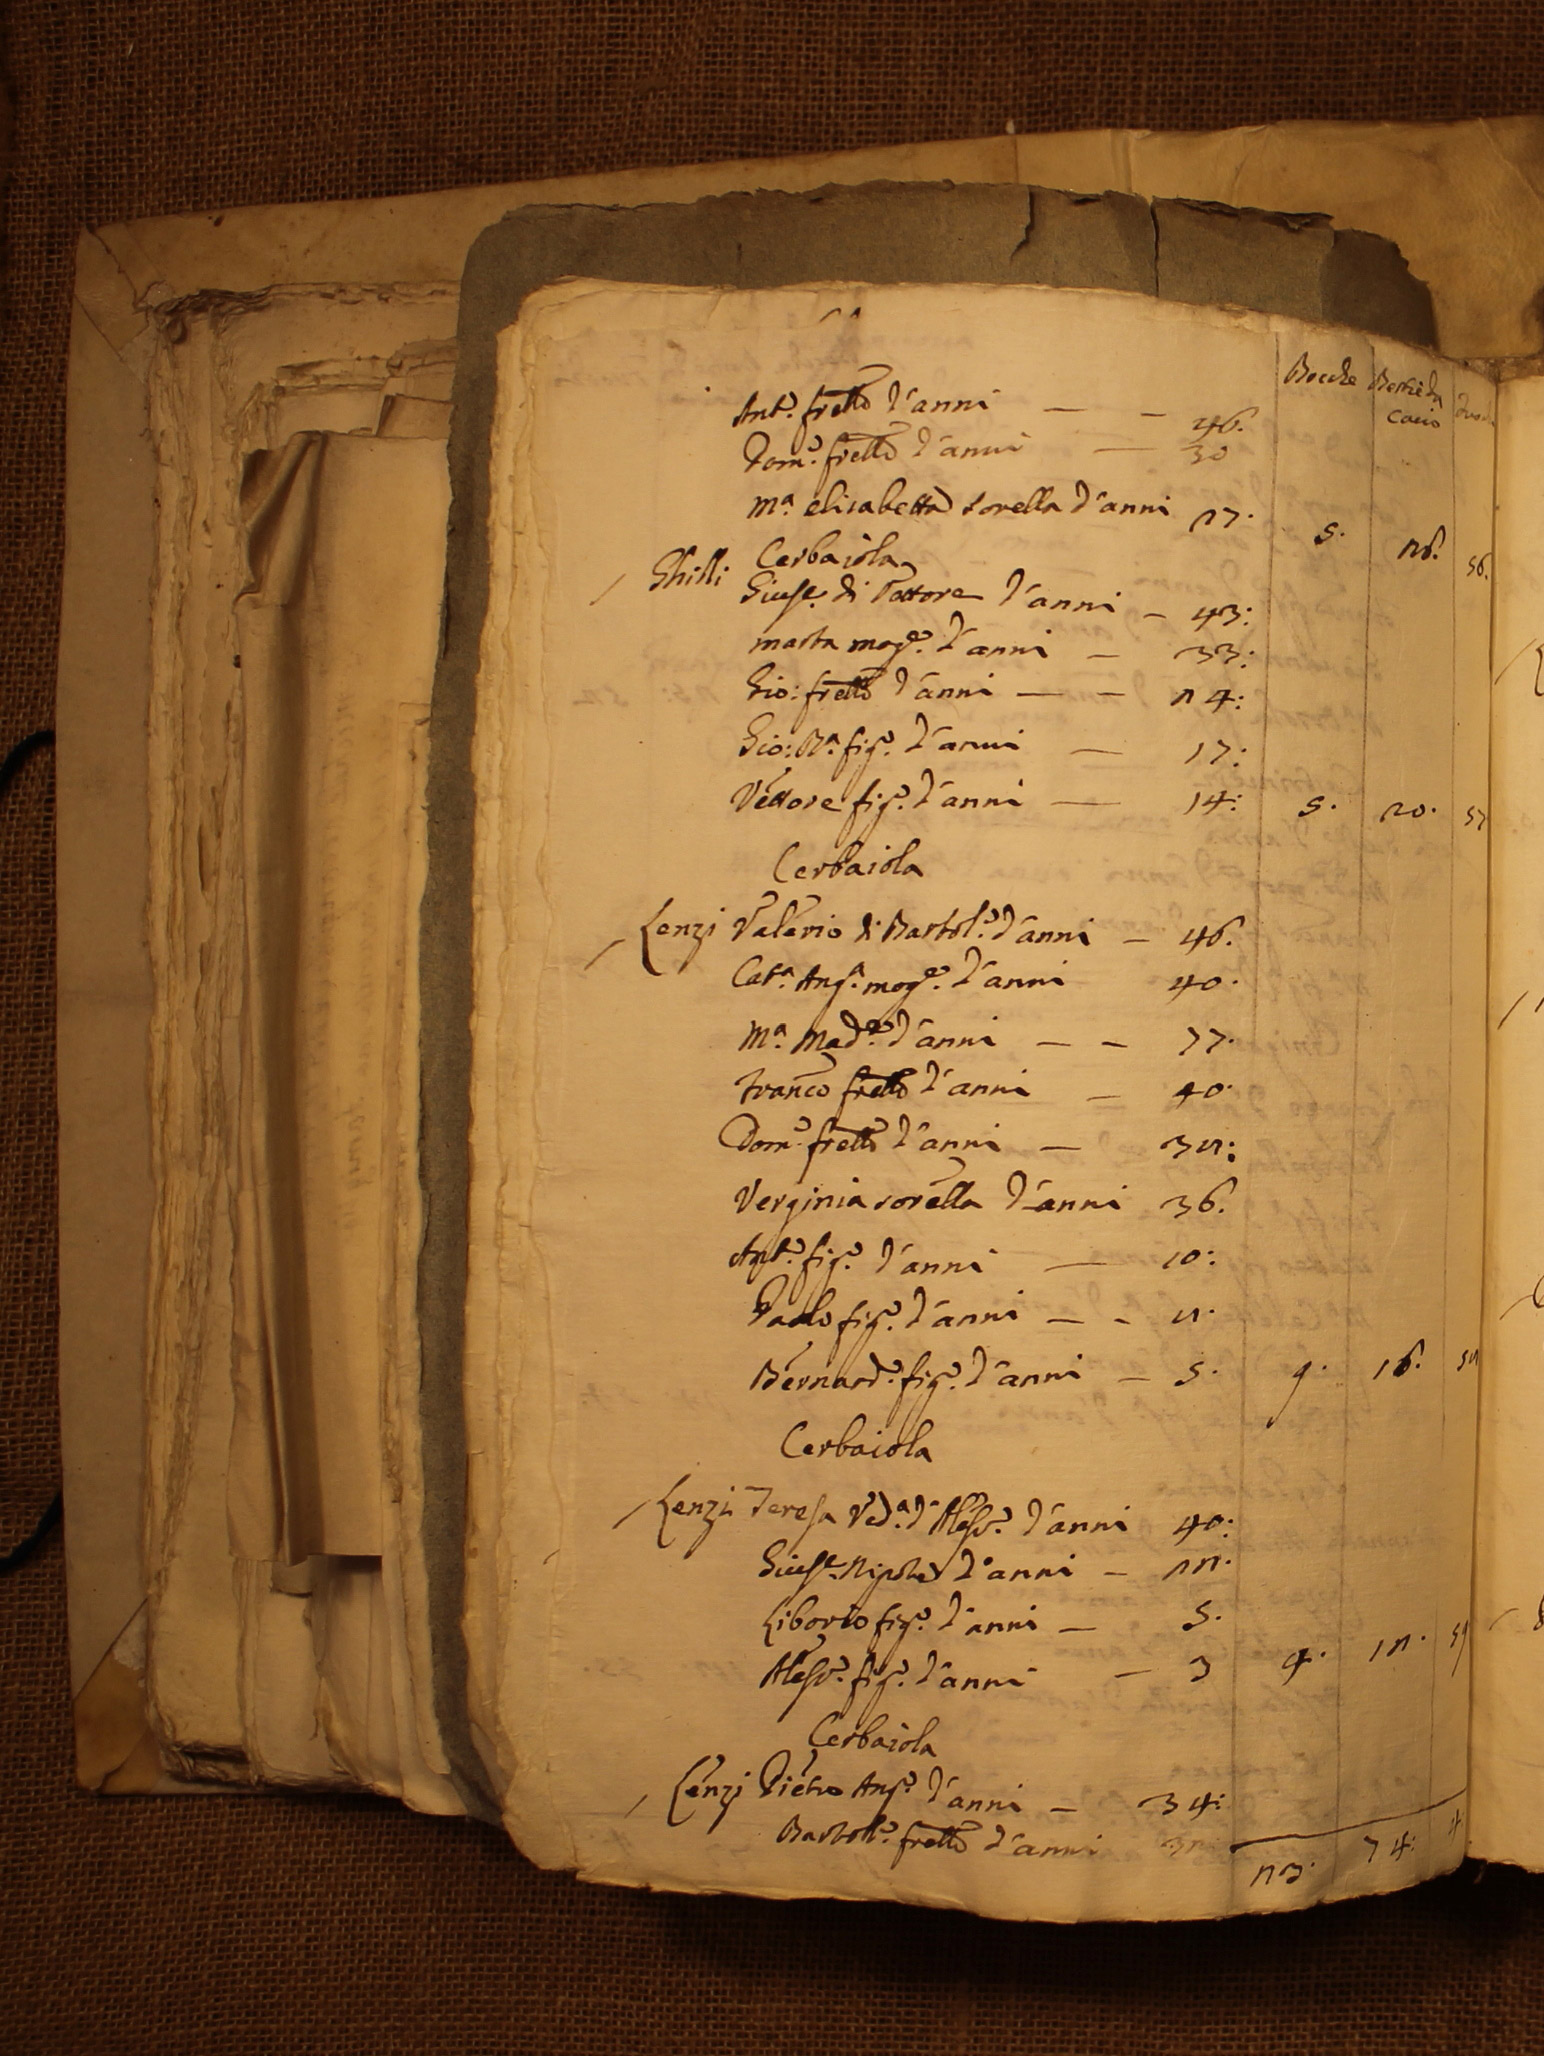 Bocche Bestie da
Cacio
Ant.º frello d'anni — — 46.
Dom.º frello d'anni — 30
M.ª elisabetta sorella d'anni 27. 5. 26. 56.
Cerbaiola
Ghilli Gius.e di Vettore d'anni — 43:
Marta mog.e d'anni — 33:
Gio: frello d'anni — — 24:
Gio: B.ª fig.º d'anni — 17:
Vettore fig.º d'anni — 14: 5. 20. 57
Cerbaiola
Lenzi Valerio di Bartol.º d'anni — 46.
Cat.ª Ang.ª mog.e d'anni 40.
M.ª Mad.e d'anni — — 77.
Franco frello d'anni — 40.
Dom.º frello d'anni — 38:
Verginia sorella d'anni 36.
Ant.º fig.º d'anni — 10:
Paolo fig.º d'anni — - 8.
Bernard.º fig.º d'anni — 5. 9. 16. 58
Cerbaiola
Lenzi Teresa Ved.ª d'Aless.º d'anni 40:
Gius.e Nipote d'anni — 12.
Liborio fig.º d'anni — 5.
Aless.º fig.º d'anni — 3 4. 12. 59
Cerbaiola
Lenzi Pietro Ang.º d'anni — 34:
Bartol.º frello d'anni
23. 74: